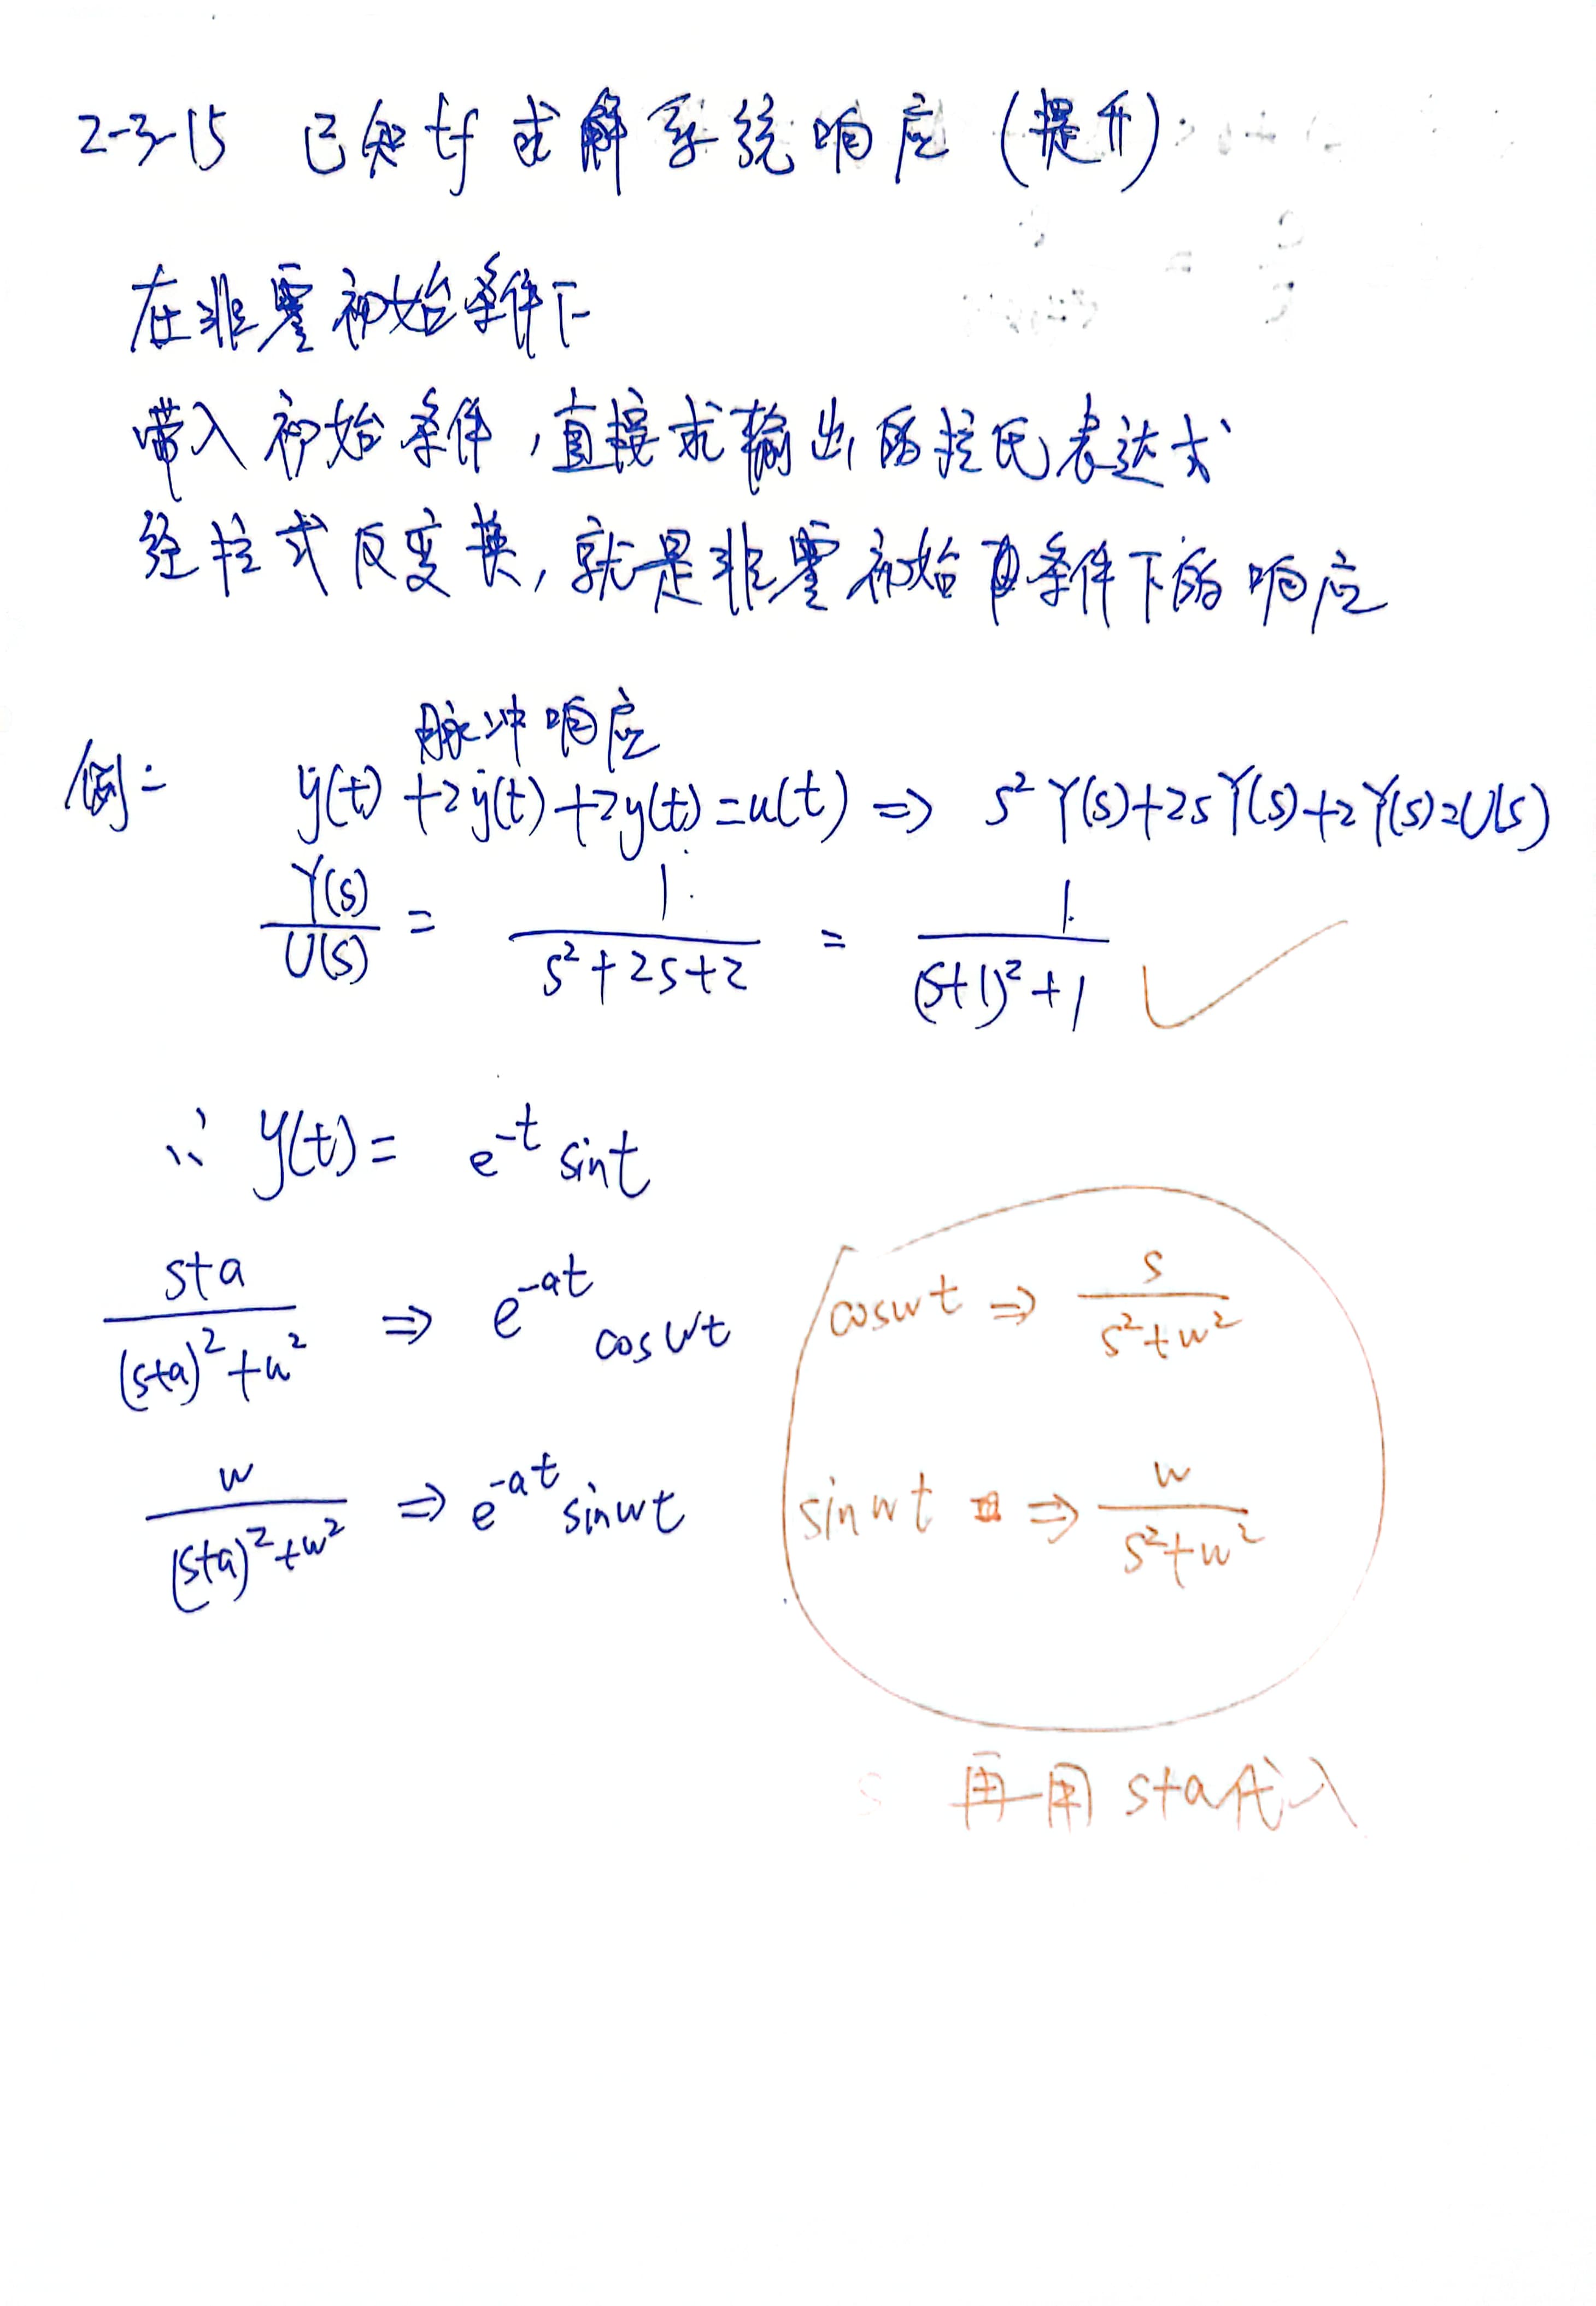 2-3-15 已知tf求解系统响应(提升)
在非零初始条件下
带入初始条件,直接求输出的拉氏表达式
经拉式反变换,就是非零初始条件下的响应
脉冲响应
例: ÿ(t)+2ẏ(t)+2y(t)=u(t) ⇒ s²Y(s)+2sY(s)+2Y(s)=U(s)
Y(s)/U(s) = 1/(s²+2s+2) = 1/((s+1)²+1) ✓
∵ y(t)= e^-t sint
(s+a)/((s+a)²+w²) ⇒ e^-at coswt
coswt ⇒ s/(s²+w²)
w/((s+a)²+w²) ⇒ e^-at sinwt
sinwt ⇒ w/(s²+w²)
再用 s+a代入